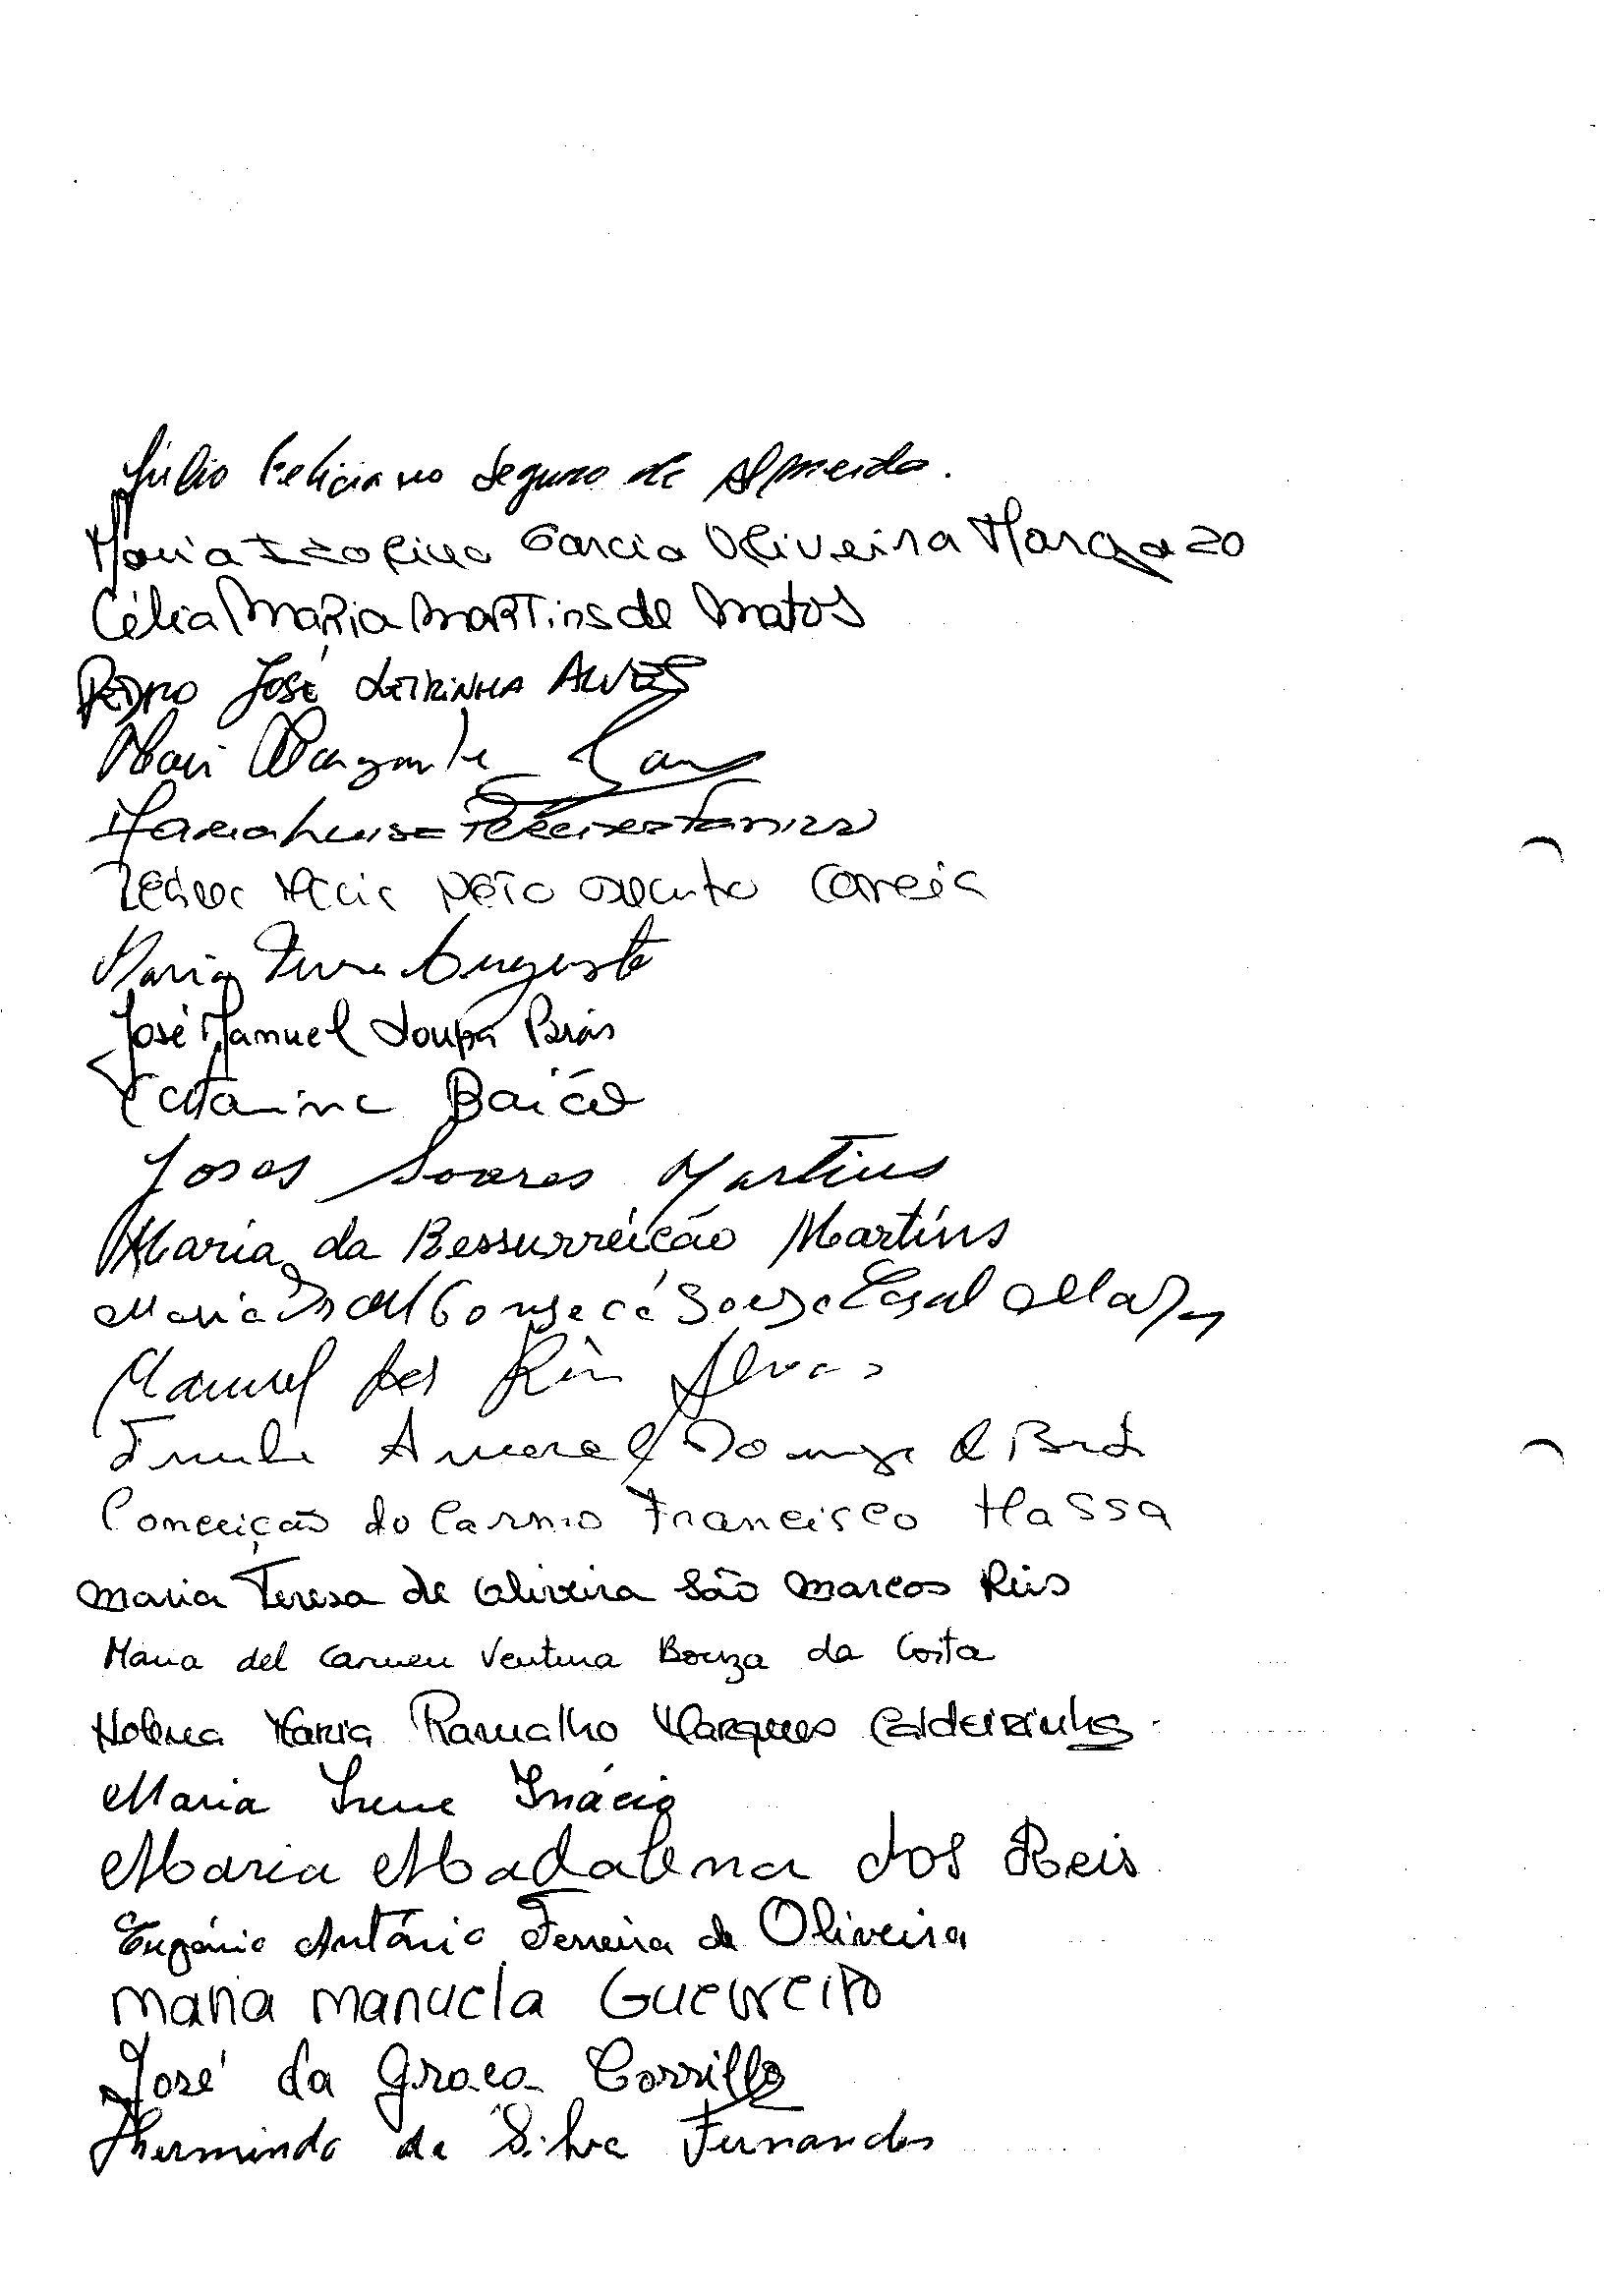 Júlio Feliciano Seguro de Almeida.
Maria Izolina Garcia Oliveira Margazo
Célia Maria Martins de Matos
Pedro José Leirinha Alves
Maria Margarida
Maria Luisa Teixeira
Maria Neto Correia
Maria Augusta
José Manuel Loupa Brás
Catarina Baião
Joses Soares Martins
Maria da Ressurreição Martins
Maria Fonseca Sousa Casal
Manuel dos Reis Alves
Amaral Brás
Conceição do Carmo Francisco Massa
Maria Teresa de Oliveira São Marcos Reis
Maria del Carmen Ventura Bouza da Costa
Helena Maria Ramalho Marques Caldeirinha
Maria Irene Inácio
Maria Madalena dos Reis
Eugénio António Ferreira de Oliveira
Maria Manuela Guerreiro
José da Graça Corrillo
Hermindo da Silva Fernandes